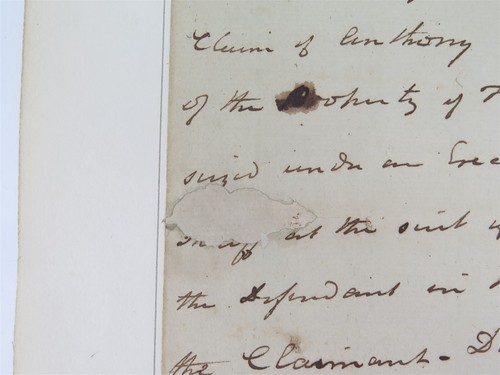 Claim of Anthony
of the Property of
seized under an Exec
at the suit of
the Defendant in
the Claimant - D